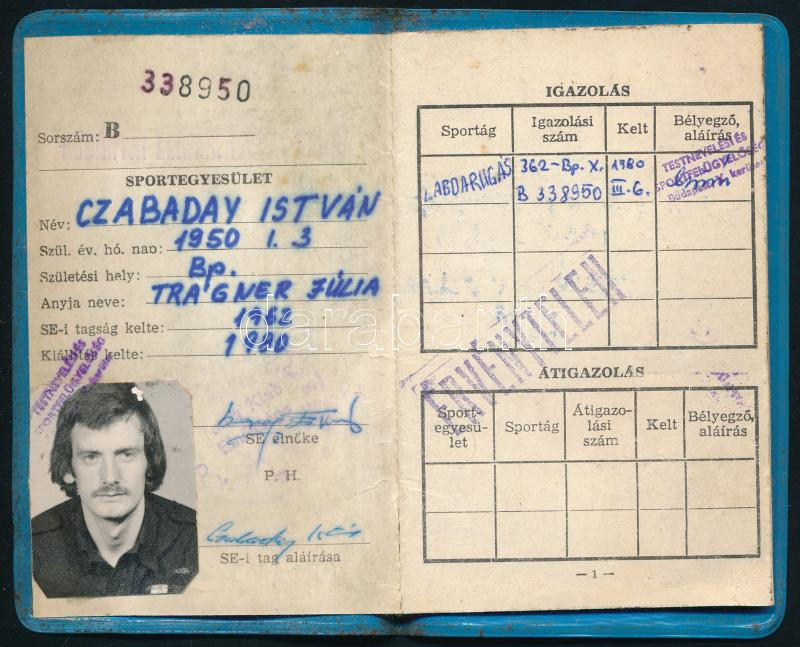 338950
Sorszám: B
SPORTEGYESÜLET
Név: CZABADAY ISTVÁN
Szül. év, hó, nap: 1950 I. 3
Születési hely: Bp.
Anyja neve: TRAGNER JÚLIA
SE-i tagság kelte: 1962
Kiállítás kelte: 1980
TESTNEVELÉSI ÉS
SPORTFELÜGYELŐSÉG
SE elnöke
P. H.
SE-i tag aláírása
IGAZOLÁS
Sportág Igazolási szám Kelt Bélyegző, aláírás
LABDARUGÁS 362-Bp. X. 1980
B 338950 III-6.
TESTNEVELÉSI ÉS
SPORTFELÜGYELŐSÉG
Budapest X. kerület
ÉRVÉNYTELEN
darabanth
ÁTIGAZOLÁS
Sport-
egyesü-
let Sportág Átigazo-
lási
szám Kelt Bélyegző,
aláírás
— 1 —